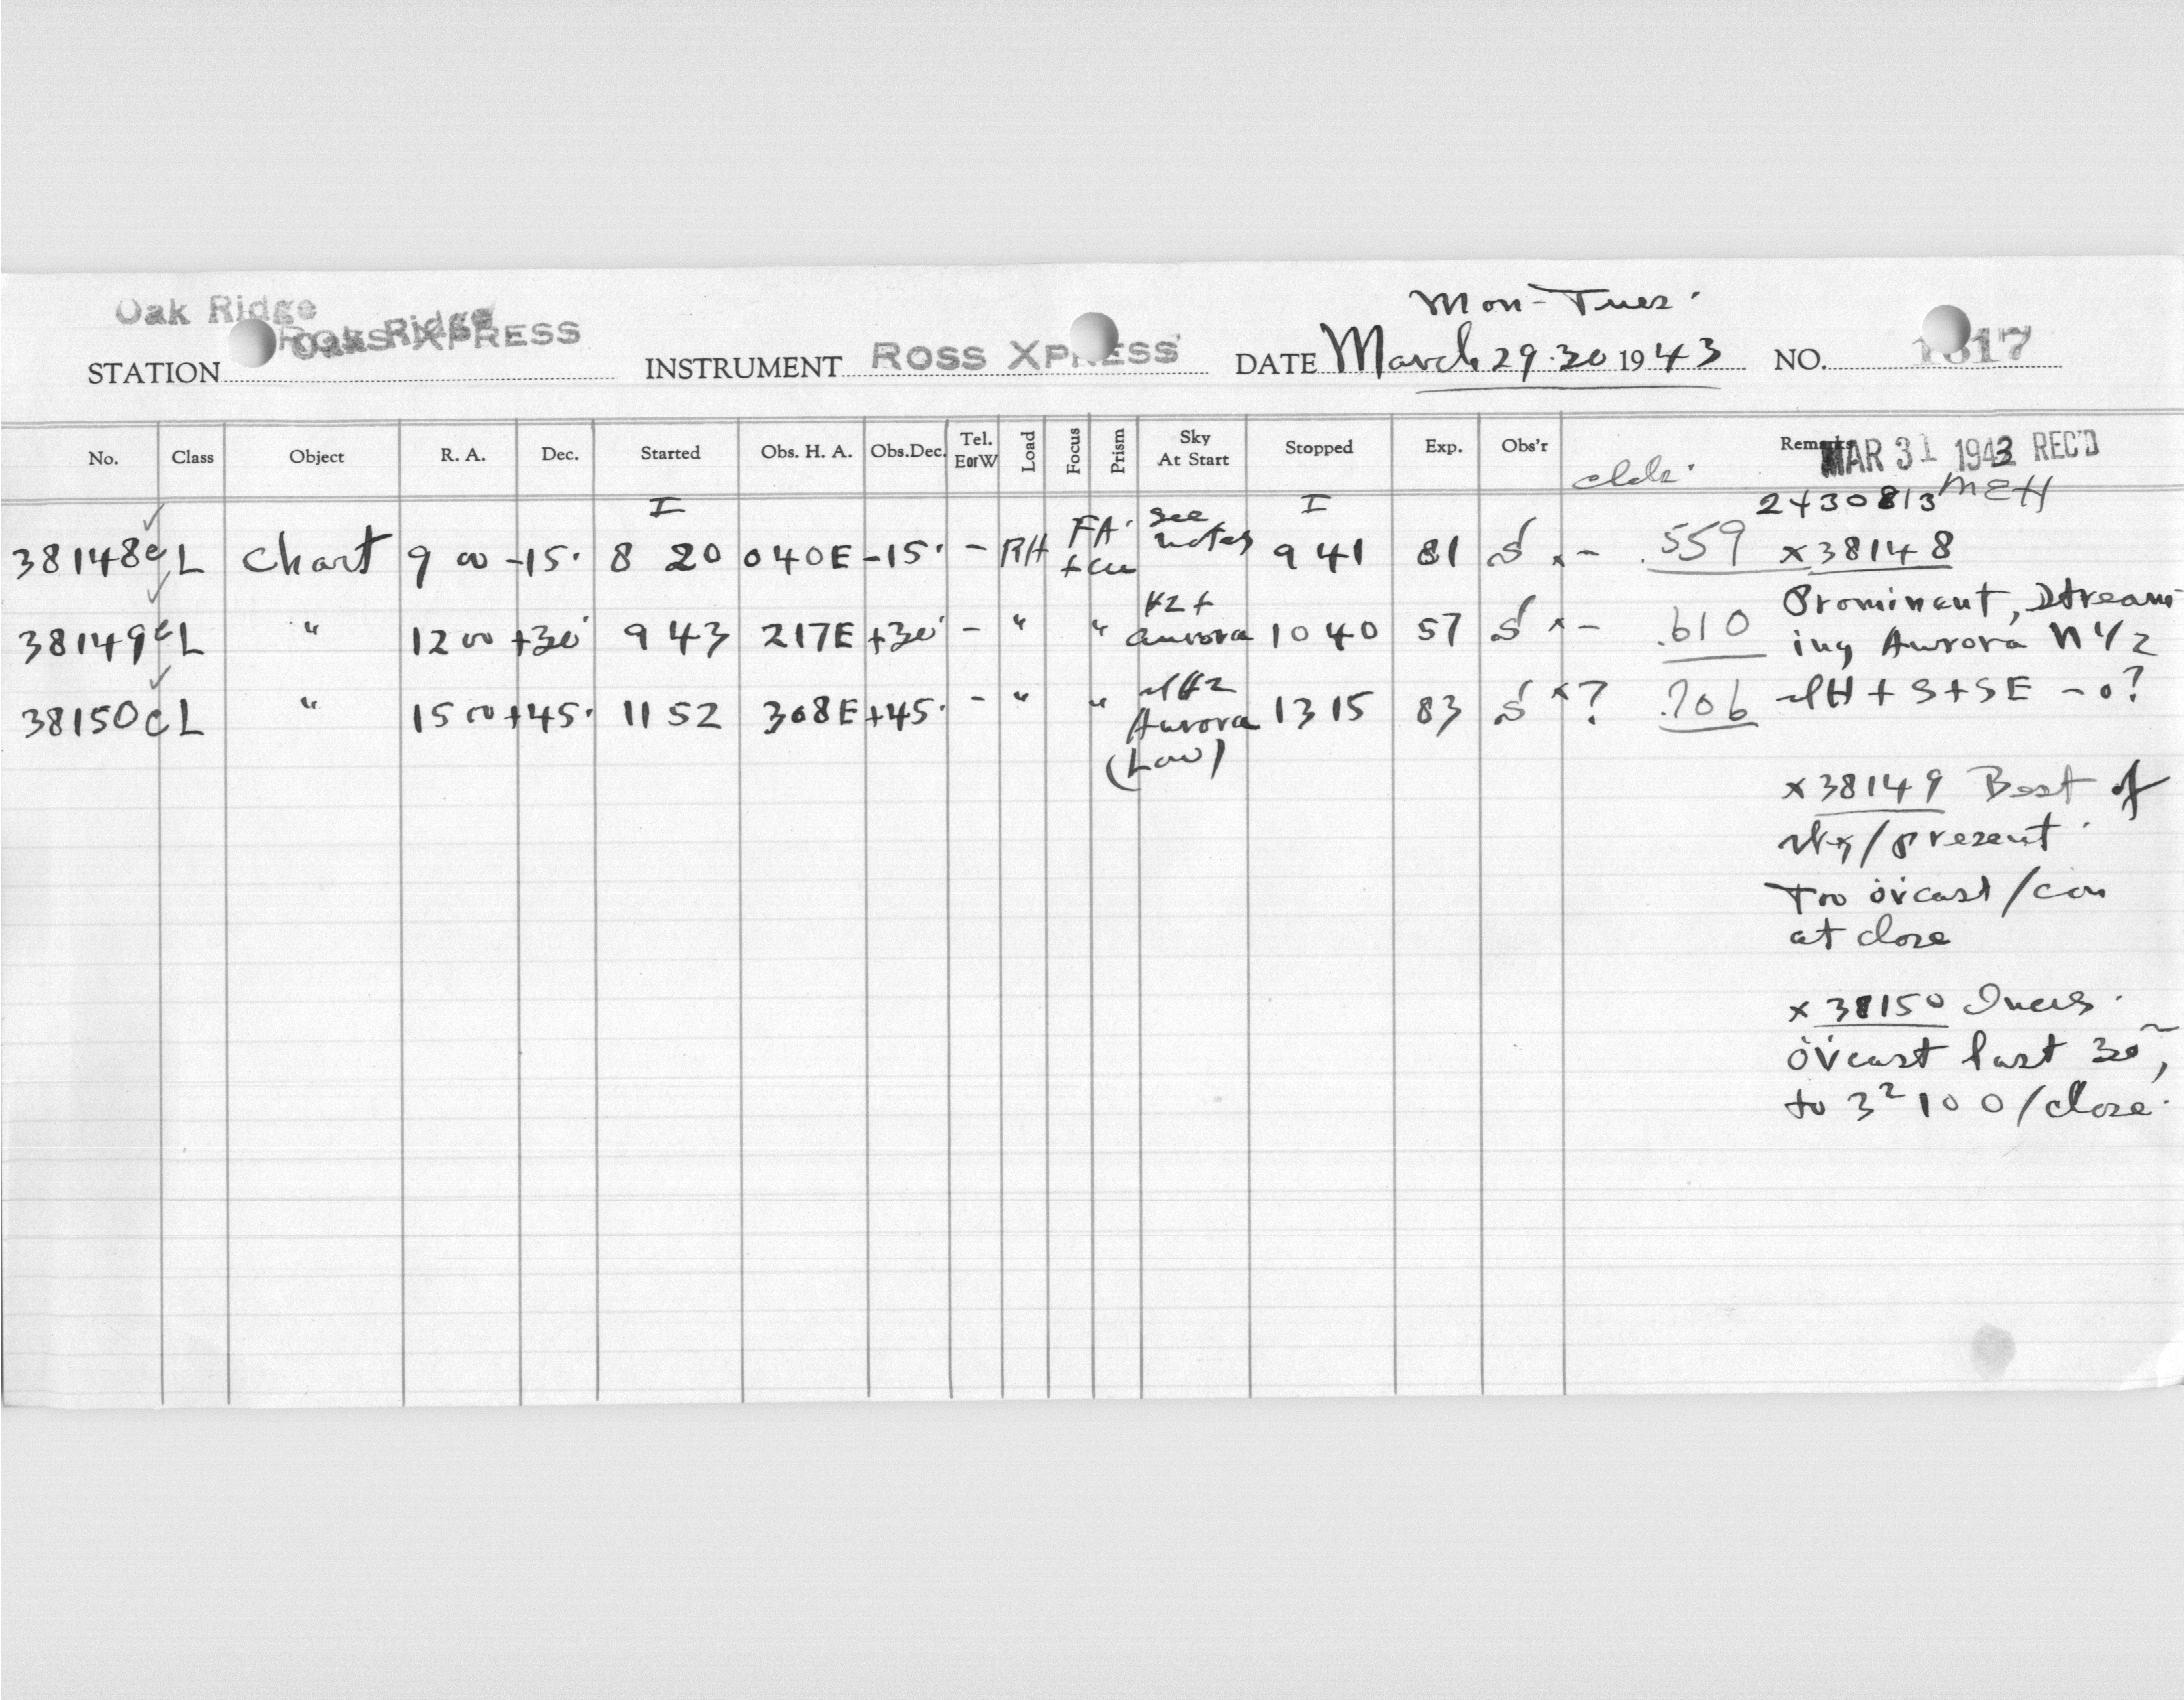 Mon-Tues.
Oak Ridge
Oak Ridge
STATION ROSS XPRESS INSTRUMENT ROSS XPRESS DATE March 29.30 1943 NO. 1817
No. Class Object R. A. Dec. Started Obs. H. A. Obs.Dec. Tel. EorW Load Focus Prism Sky At Start Stopped Exp. Obs'r Remarks
MAR 31 1943 REC'D
MEH
I I 2430813
38148c L Chart 9 00 -15. 8 20 040E -15. - RH FA. see notes 9 41 81 S x - .559 x 38148
38149c L " 12 00 +30 9 43 217E +30 - " " H2 + aurora 10 40 57 S x - .610 Prominent, Stream-
ing Aurora N 1/2
38150c L " 15 00 +45. 11 52 308E +45. - " " H2 Aurora (Low) 13 15 83 S x ? .706 H + S + SE - 0?
x 38149 Best of
sky/present.
Too o'vcast/con
at close
x 38150 Incrs.
o'vcast last 30~,
to 3² 100/close.